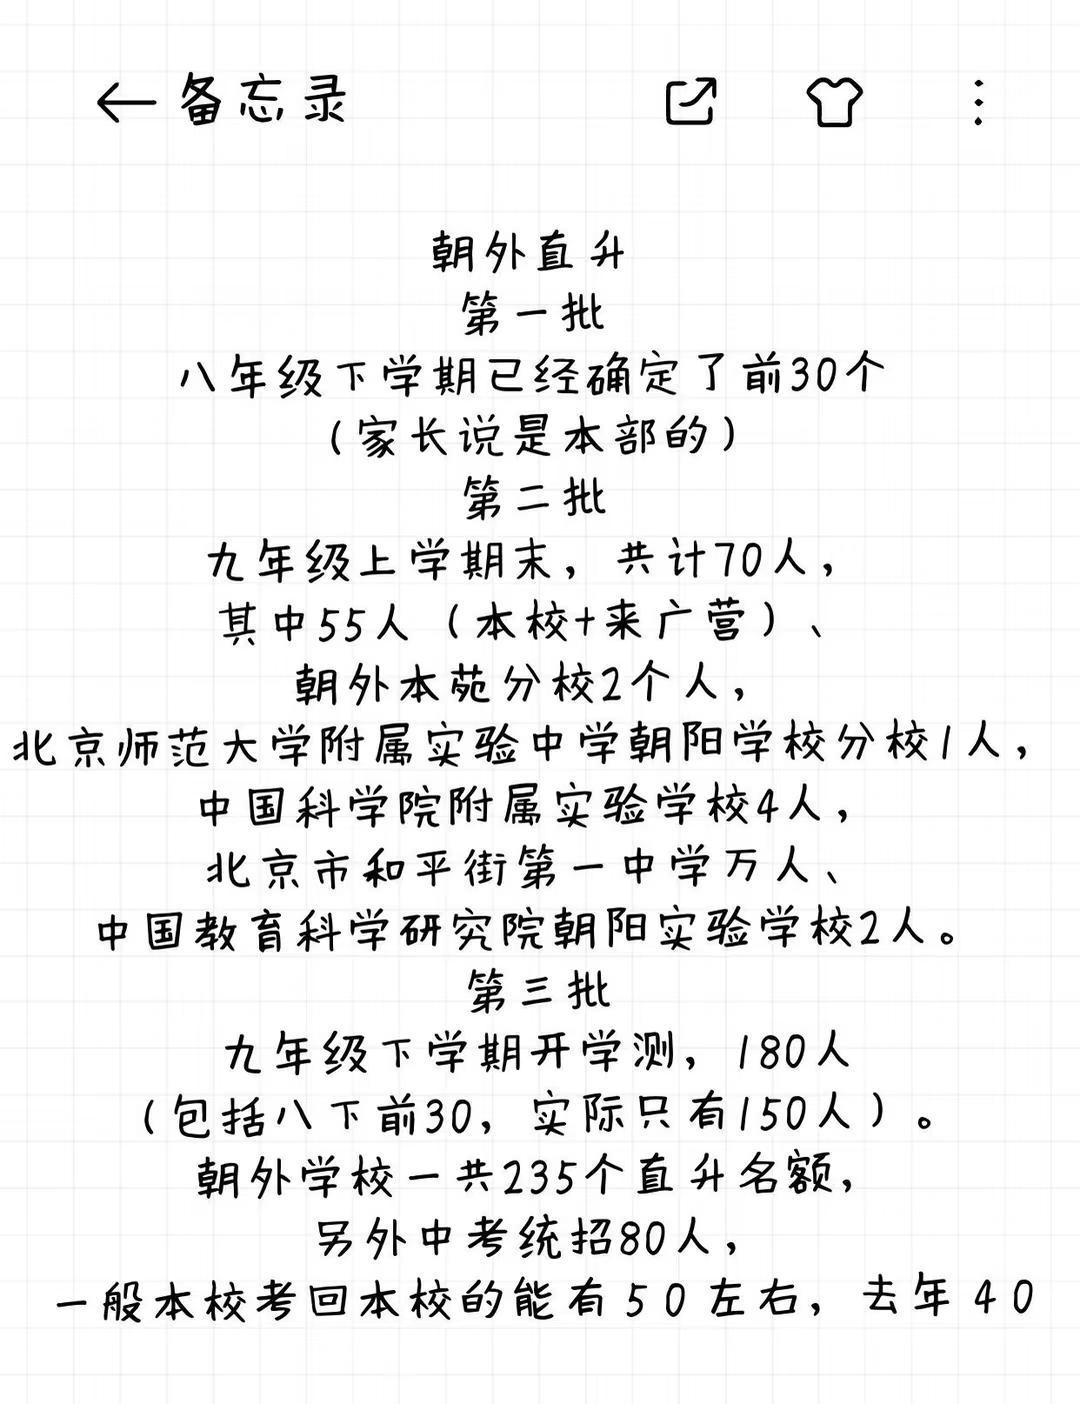 备忘录
朝外直升
第一批
八年级下学期已经确定了前30个
（家长说是本部的）
第二批
九年级上学期末，共计70人，
其中55人（本校+来广营）、
朝外本苑分校2个人，
北京师范大学附属实验中学朝阳学校分校1人，
中国科学院附属实验学校4人，
北京市和平街第一中学万人、
中国教育科学研究院朝阳实验学校2人。
第三批
九年级下学期开学测，180人
（包括八下前30，实际只有150人）。
朝外学校一共235个直升名额，
另外中考统招80人，
一般本校考回本校的能有50左右，去年40